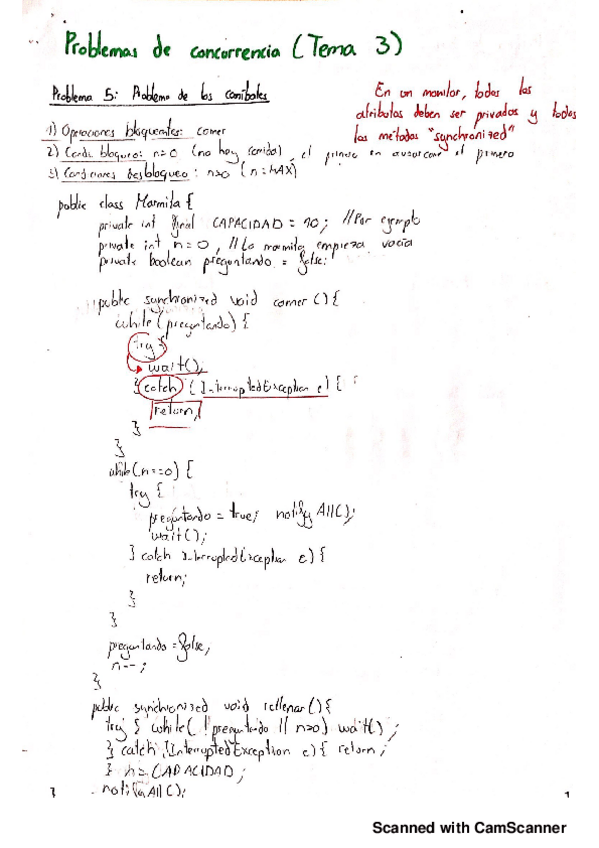 Problemas de concurrencia (Tema 3)
Problema 5: Problema de los caníbales
En un monitor, todos los
atributos deben ser privados y todos
los métodos "synchronized"
1) Operaciones bloqueantes: comer
2) Cond. bloqueo: n=0 (no hay comida), el primero en avisar come el primero
3) Condiciones desbloqueo: n>0 (n=MAX)
public class Marmita {
private int final CAPACIDAD = 10; //Por ejemplo
private int n=0, //La marmita empieza vacía
private boolean preguntando = false;
public synchronized void comer () {
while (preguntando) {
try {
wait();
} catch (InterruptedException e) {
return;
}
}
while (n==0) {
try {
preguntando = true; notifyAll();
wait();
} catch InterruptedException e) {
return;
}
}
preguntando = false;
n--;
}
public synchronized void rellenar() {
try { while ( !preguntando || n>0) wait() ;
} catch (InterruptedException e) { return ;
} n = CAPACIDAD ;
} notifyAll();
1
Scanned with CamScanner